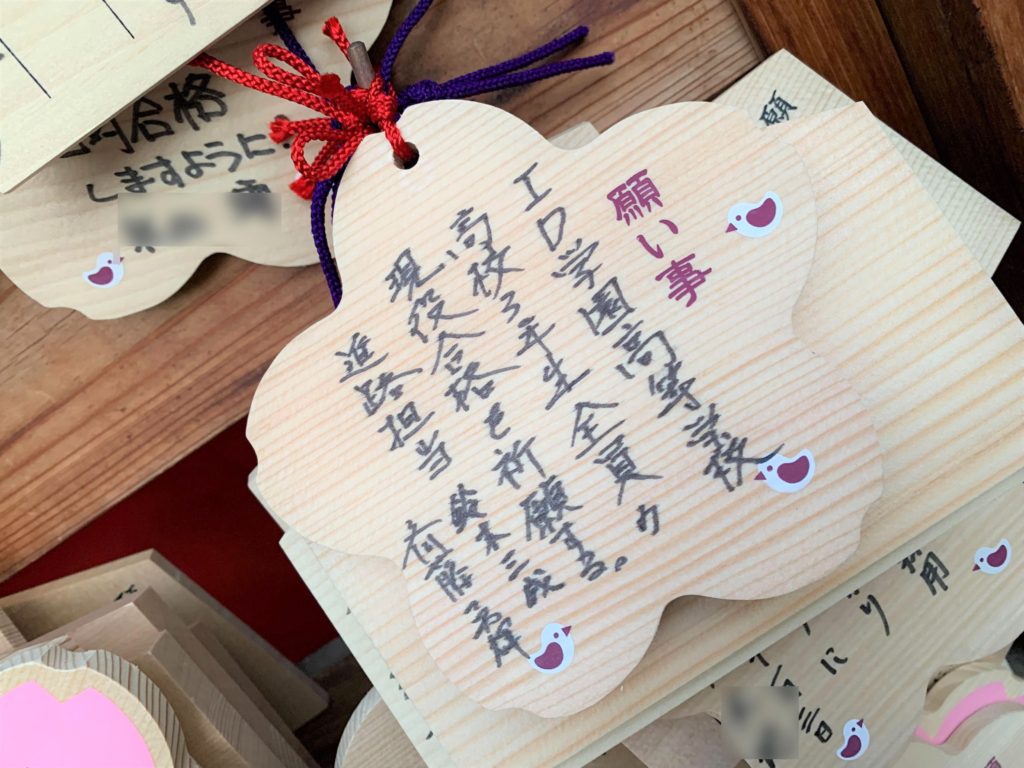 願い事
エロ学園高等学校
高校3年生全員の
現役合格を祈願する。
進路担当 鈴木三成
合格
しますように!
願
採用